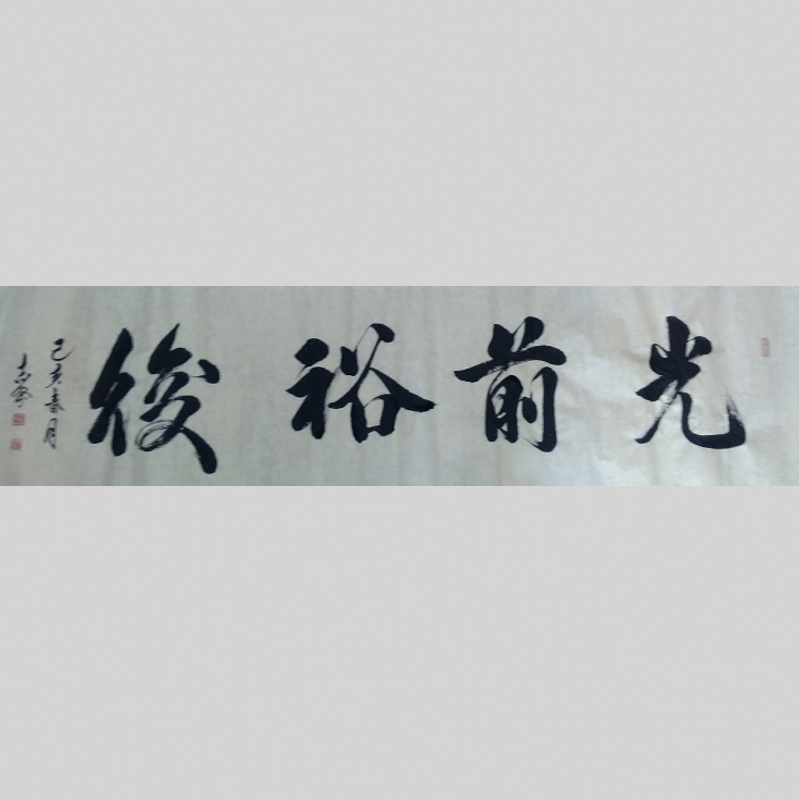 光前裕後
己亥春月